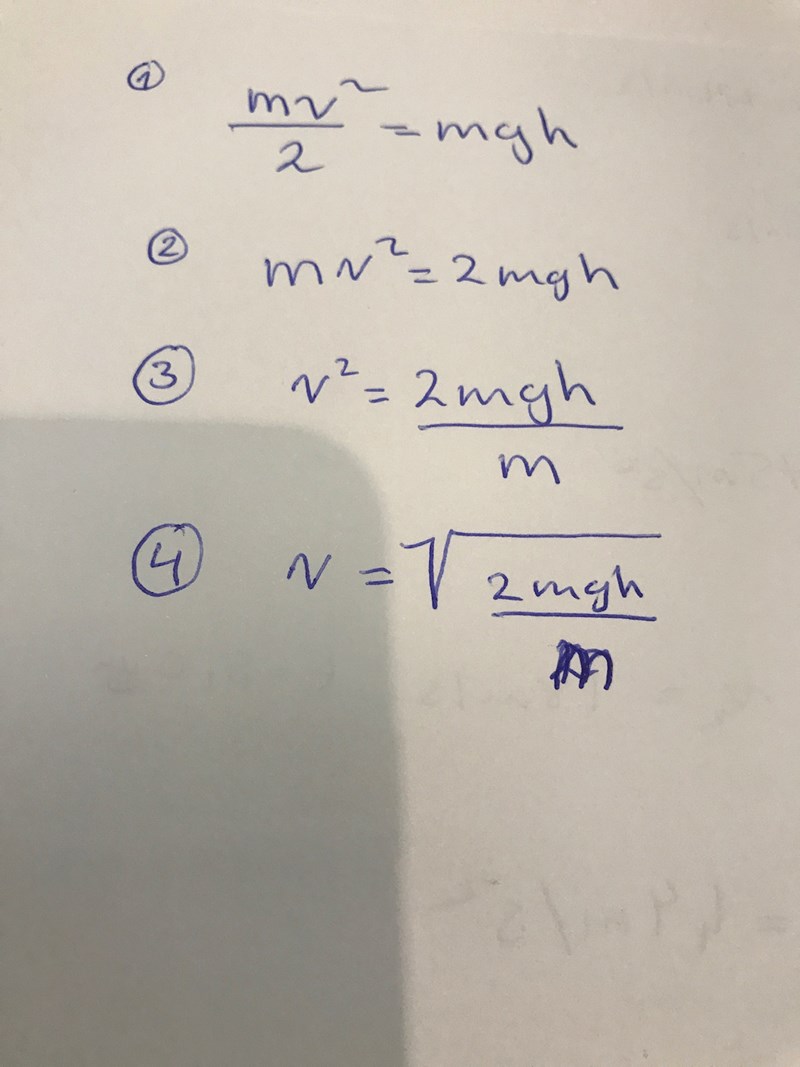 ① mv²/2 = mgh
② mv² = 2mgh
③ v² = 2mgh/m
④ v = √(2mgh/m)